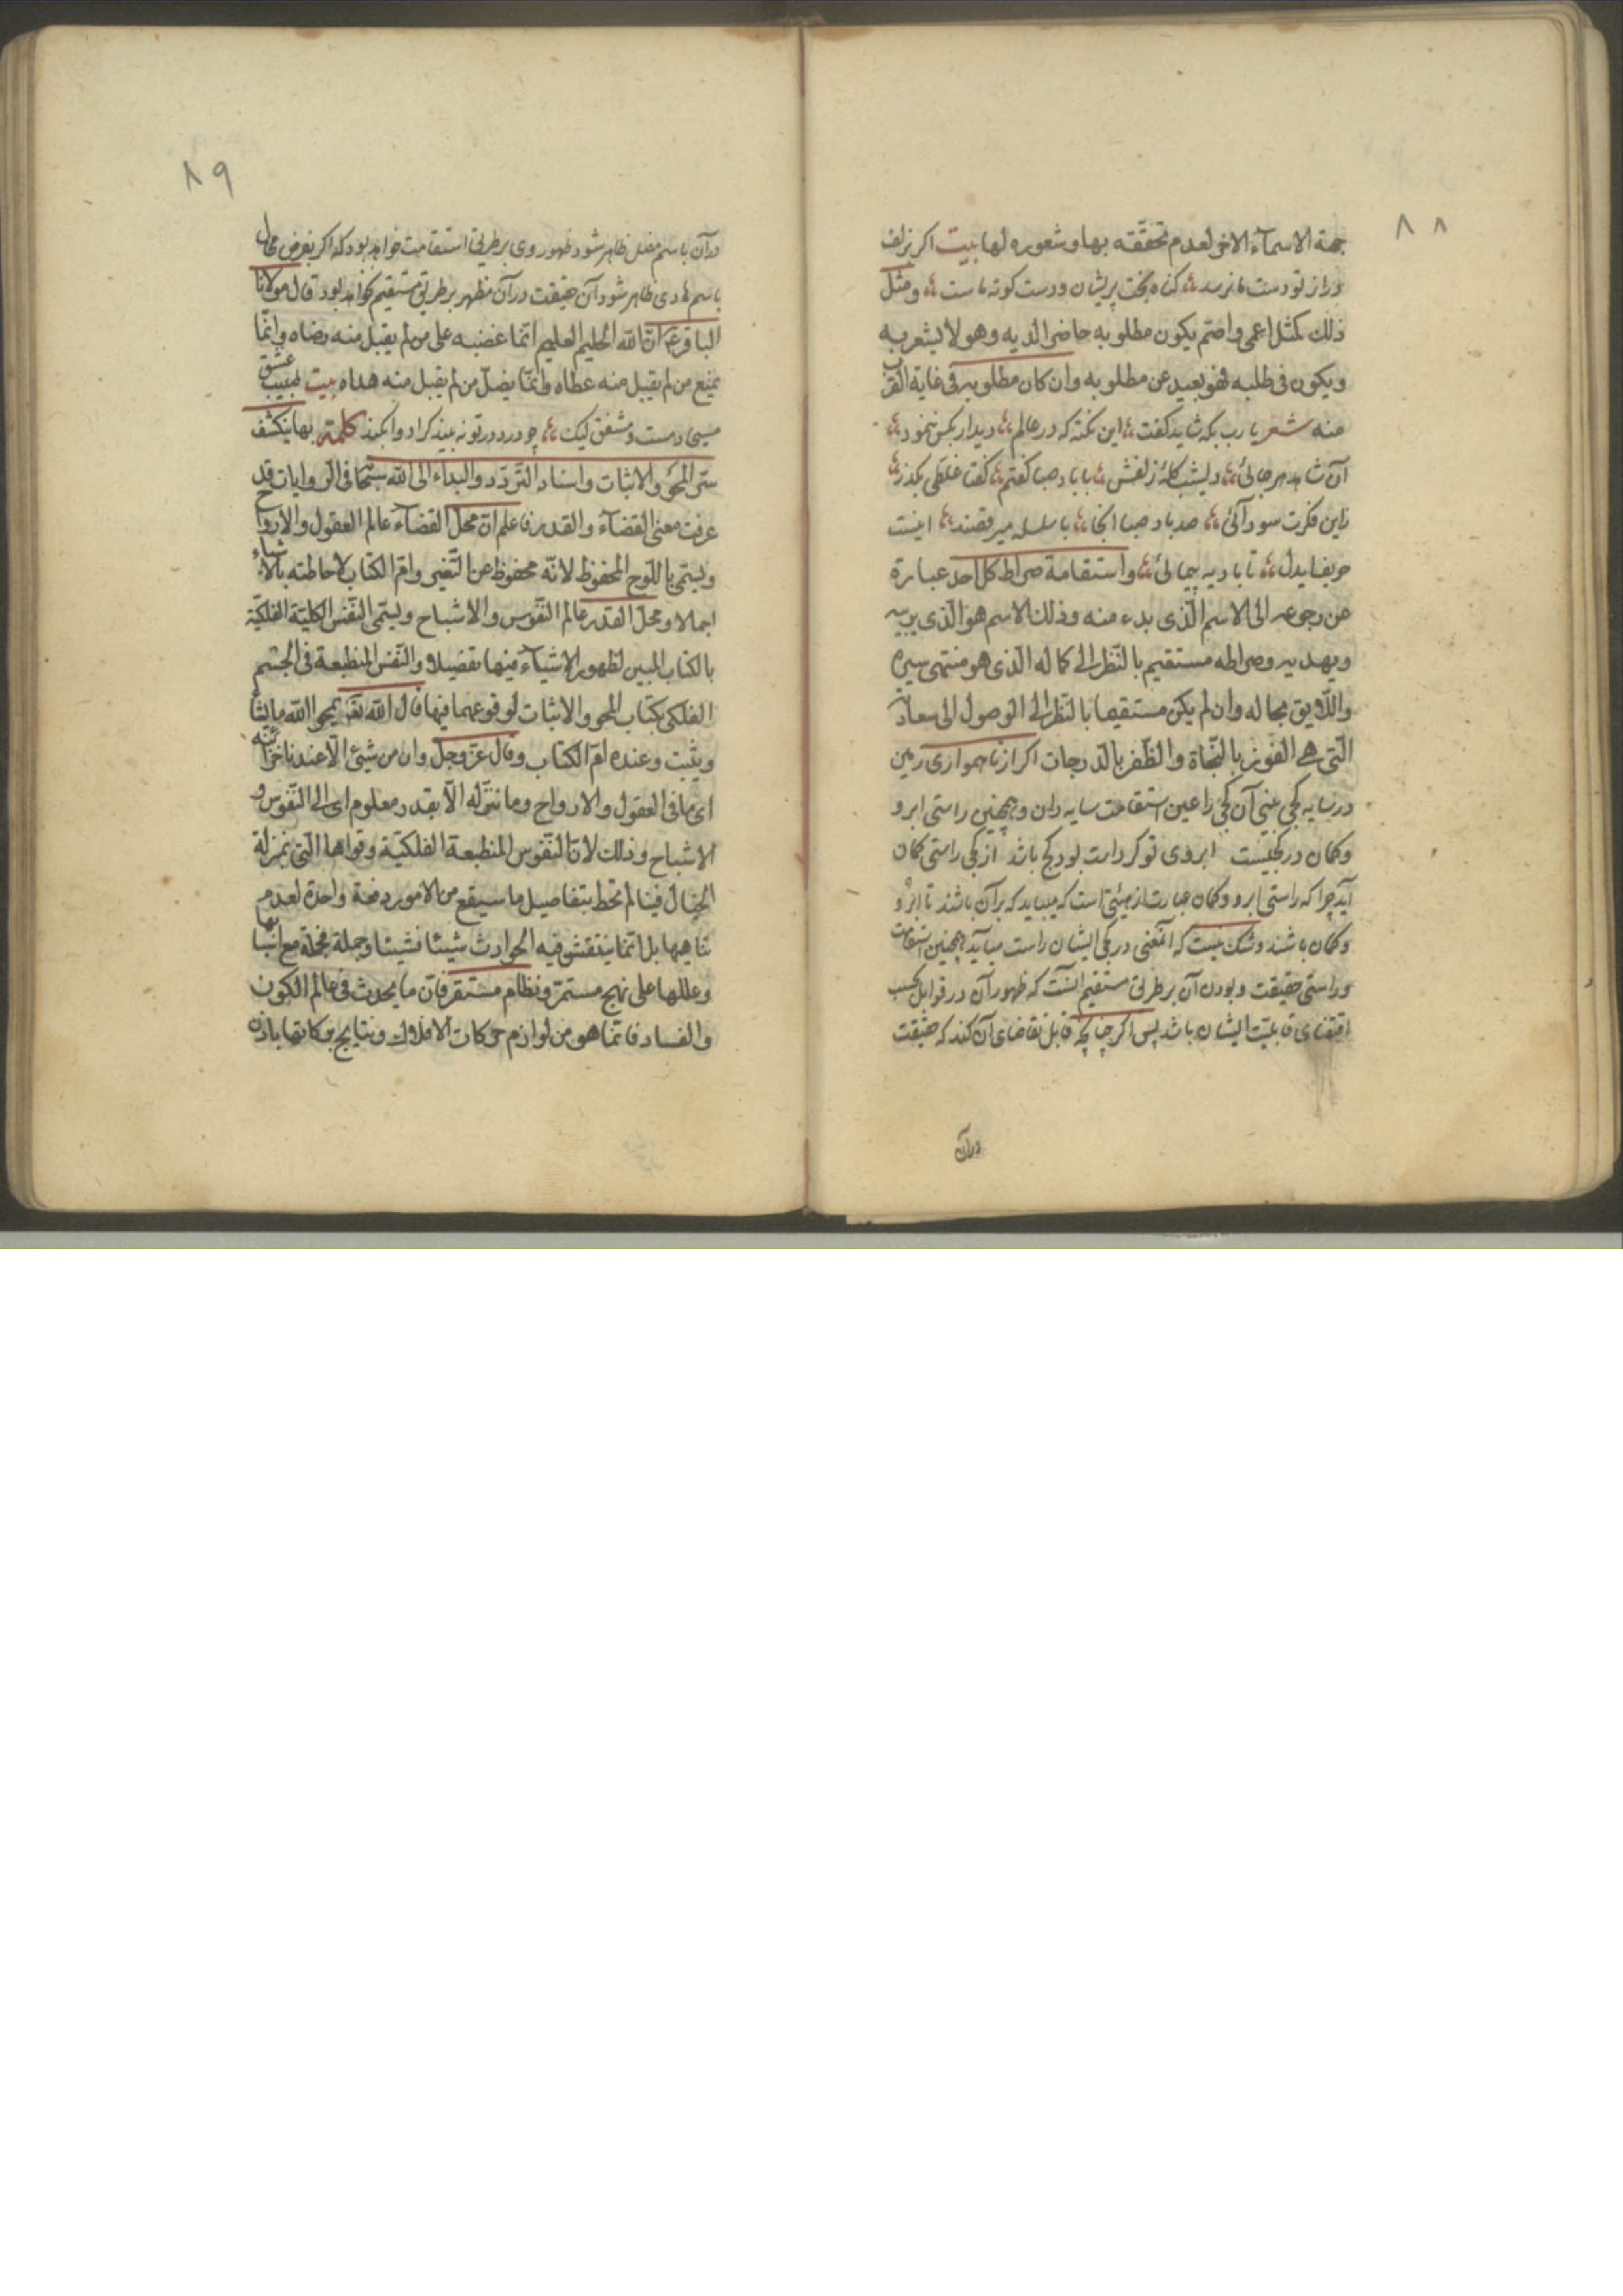 ٨٨
جهة الاسمآء الاخر لعدم تحققه بها وشعوره لها بيت اكر بزلف
دراز تو دست ما نرسد كناه بخت پريشان ودست كوته ماست ومثل
ذلك كمثل اعمى واصم يكون مطلوبه حاضرا لديه وهو لا يشعر به
ويكون فى طلبه فهو بعيد عن مطلوبه وان كان مطلوبه فى غاية القرب
منه شعر يا رب بكه شايد كفت اين نكته كه در عالم ديدار بكس ننمود
آن شاهد هرجائى ديشب كله زلفش با باد صبا كفتم كفتا غلطى بكذر
زاين فكرت سودآئى صد باد صبا انجا با سلسله ميرقصند اينست
حريف ايدل تا باديه پيمائى واستقامة صراط كل احد عبارة
عن رجوعه الى الاسم الذى بدء منه وذلك الاسم هو الذى يربيه
ويهديه وصراطه مستقيم بالنظر الى كماله الذى هو منتهى سيره
واللايق بحاله وان لم يكن مستقيما بالنظر الى الوصول الى سعادته
التى هى الفوز بالنجاة والظفر بالدرجات اكر از ناهموارى زمين
در سايه كجى بينى آن كجى را عين استقامت سايه دان وهمچنين راستى ابرو
وكمان در كجيست ابروى تو كر راست بود كج باشد از كجى راستى كمان
آيد چرا كه راستى ابرو وكمان عبارت از هيئتى است كه ميبايد كه بر آن باشند تا ابرو
وكمان باشند وشك نيست كه آنمعنى در كجى ايشان راست ميآيد همچنين استقامت
وراستى حقيقت وبودن آن بر طريق مستقيم آنست كه ظهور آن در قوابل بحسب
اقتضاى قابليت ايشان باشد پس اكر چنانچه قابل تقاضاى آن كند كه حقيقت
در آن
٨٩
در آن باسم مضل ظاهر شود ظهور وى بر طريق استقامت خواهد بود كه اكر بفرض محال
باسم هادى ظاهر شود آن حقيقت در آن مظهر بر طريق مستقيم نخواهد بود قال مولانا
الباقر ع ان الله الحليم العليم انما غضبه على من لم يقبل منه رضاه وانما
يمنع من لم يقبل منه عطاه وانما يضل من لم يقبل منه هداه بيت طبيب عشق
مسيحا دمست ومشفق ليك چو درد در تو نه بيند كرا دوا بكند كلمة بها ينكشف
سر المحو والاثبات واسناد التردد والبداء الى الله سبحانه فى الروايات قد
عرفت معنى القضآء والقدر فاعلم ان محل القضآء عالم العقول والارواح
ويسمى باللوح المحفوظ لانه محفوظ عن التغير وام الكتاب لاحاطته بالاشياء
اجمالا ومحل القدر عالم النفوس والاشباح ويسمى النفس الكلية الفلكية
بالكتاب المبين لظهور الاشيآء فيها تفصيلا والنفس المنطبعة فى الجسم
الفلكى بكتاب المحو والاثبات لوقوعهما فيها قال الله تعـ يمحو الله ما يشآء
ويثبت وعنده ام الكتاب وقال عز وجل وان من شيئ الا عندنا خزائنه
اى ما فى العقول والارواح وما ننزله الا بقدر معلوم اى الى النفوس و
الاشباح وذلك لان النفوس المنطبعة الفلكية وقواها التى بمنزلة
الخيال فينا لم تحط بتفاصيل ما سيقع من الامور دفعة واحدة لعدم
تناهيها بل انما ينتقش فيه الحوادث شيئا فشيئا وجملة فجملة مع اسبابها
وعللها على نهج مستمر ونظام مستقر فان ما يحدث فى عالم الكون
والفساد فانما هو من لوازم حركات الافلاك ونتايج بركاتها باذن